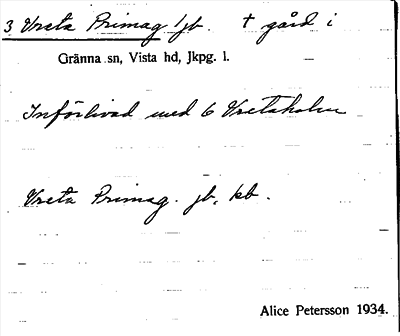 3 Vreta Primag jb. † gård i
Gränna sn, Vista hd, Jkpg. l.
Införlivad med 6 Vretaholm
Vreta Primag. jb, kb.
Alice Petersson 1934.